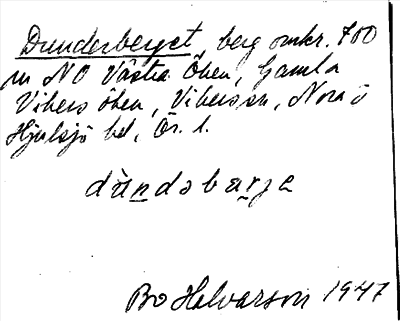 Dunderberget, berg omkr. 700
m NO Västra Öhen, Gamla
Vikers öhen, Vikerssn, Nora o
Hjulsjö bd, Ör. l.
dùndəbarjə
Bo Halvarson 1947